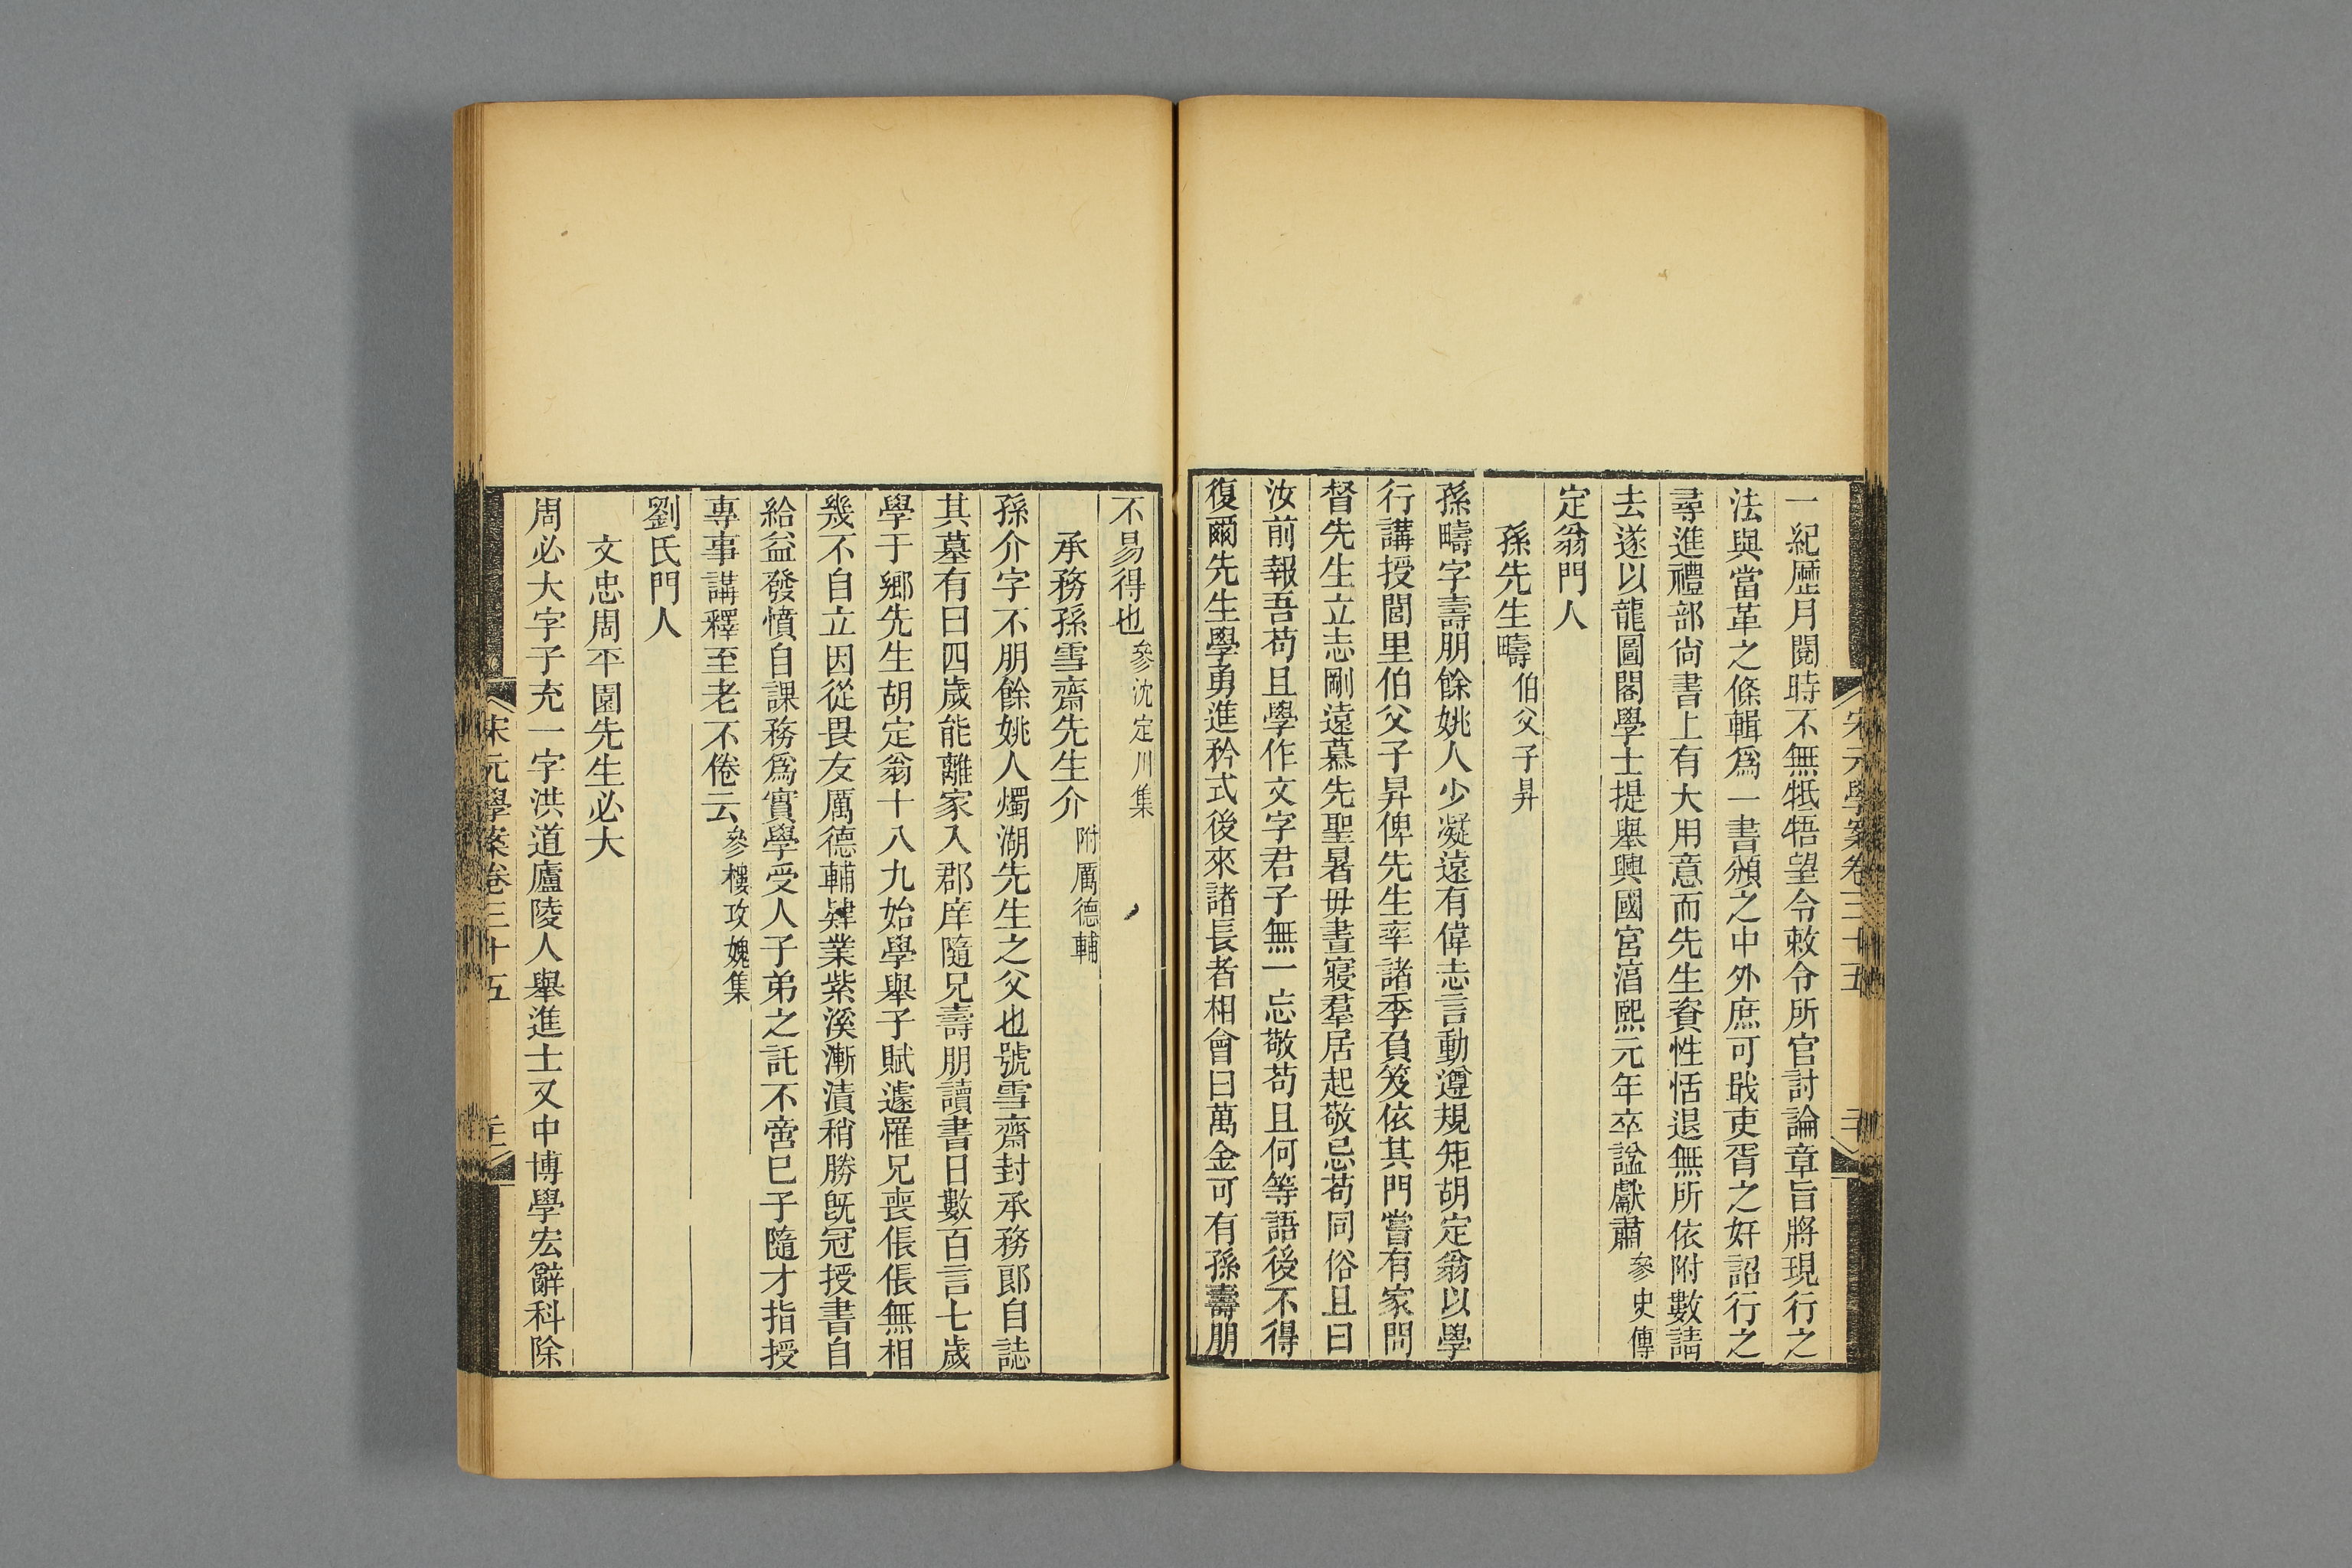 宋元學案卷三十五
一紀歴月閱時不無牴牾望令敕令所官討論章旨將現行之
法與當革之條輯爲一書頒之中外庶可戢吏胥之奸詔行之
尋進禮部尙書上有大用意而先生資性恬退無所依附數請
去遂以龍圖閣學士提舉興國宮淳熙元年卒諡獻肅參史傳
定翁門人
孫先生疇伯父子昇
孫疇字壽朋餘姚人少凝遠有偉志言動遵規矩胡定翁以學
行講授閭里伯父子昇俾先生率諸季負笈依其門嘗有家問
督先生立志剛遠慕先聖暑毋晝寢羣居起敬忌苟同俗且曰
汝前報吾苟且學作文字君子無一忘敬苟且何等語後不得
復爾先生學勇進矜式後來諸長者相會曰萬金可有孫壽朋
不易得也參沈定川集
承務孫雪齋先生介附厲德輔
孫介字不朋餘姚人燭湖先生之父也號雪齋封承務郎自誌
其墓有曰四歲能離家入郡庠隨兄壽朋讀書日數百言七歲
學于鄉先生胡定翁十八九始學舉子賦遽罹兄喪倀倀無相
幾不自立因從畏友厲德輔肄業紫溪漸漬稍勝旣冠授書自
給益發憤自課務爲實學受人子弟之託不啻已子隨才指授
專事講釋至老不倦云參樓攻媿集
劉氏門人
文忠周平園先生必大
周必大字子充一字洪道廬陵人舉進士又中博學宏辭科除
宋元學案卷三十五